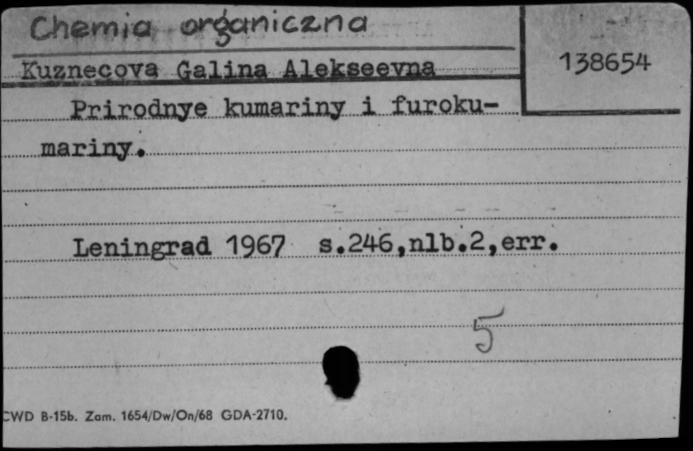 Chemia organiczna
138654
Kuznecova Galina Alekseevna
Prirodnye kumariny i furoku-
mariny.
Leningrad 1967 s.246,nlb.2,err.
5
CWD B-15b. Zam. 1654/Dw/On/68 GDA-2710.